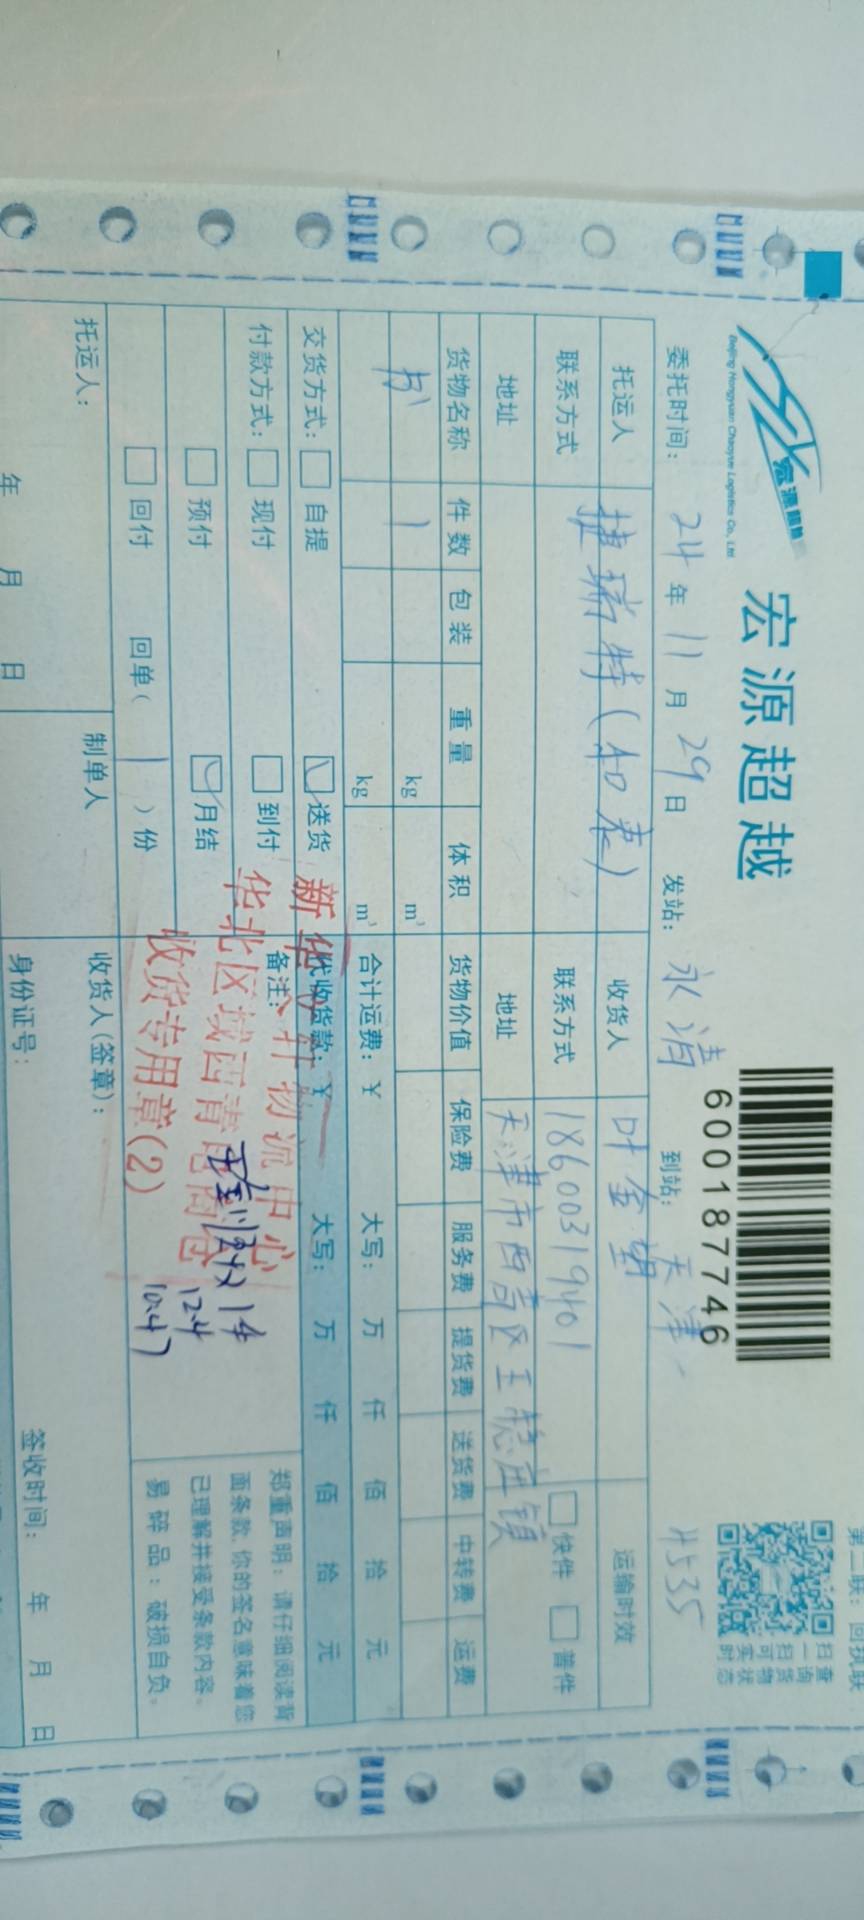 宏源超越
Beijing Hongyuan Chaoyue Logistics Co., Ltd
宏源超越
60018774 6
第二联：回执联
扫一扫
查询货物
可实时状态
委托时间： 24 年 11 月 29 日 发站： 永清 到站： 天津 4535
托运人 捷瑞特（知春） 收货人 叶金朝 运输时效
联系方式 联系方式 18600319401 快件 普件
地址 地址 天津市西青区王稳庄镇
货物名称 件数 包装 重量 体积 货物价值 保险费 服务费 提货费 送货费 中转费 运费
书 1 kg m³
kg m³ 合计运费：￥ 大写： 万 仟 佰 拾 元
交货方式： 自提 送货 代收货款：￥ 大写： 万 仟 佰 拾 元
付款方式： 现付 到付 备注：
预付 月结
回付 回单（ 1 ）份
郑重声明：请仔细阅读背
面条款，你的签名意味着您
已理解并接受条款内容。
易碎品：破损自负。
物流中心
华北区域西青
收货专用章(2)
1件
12.4
10:47
托运人： 年 月 日
制单人
收货人（签章）：
身份证号： 签收时间： 年 月 日